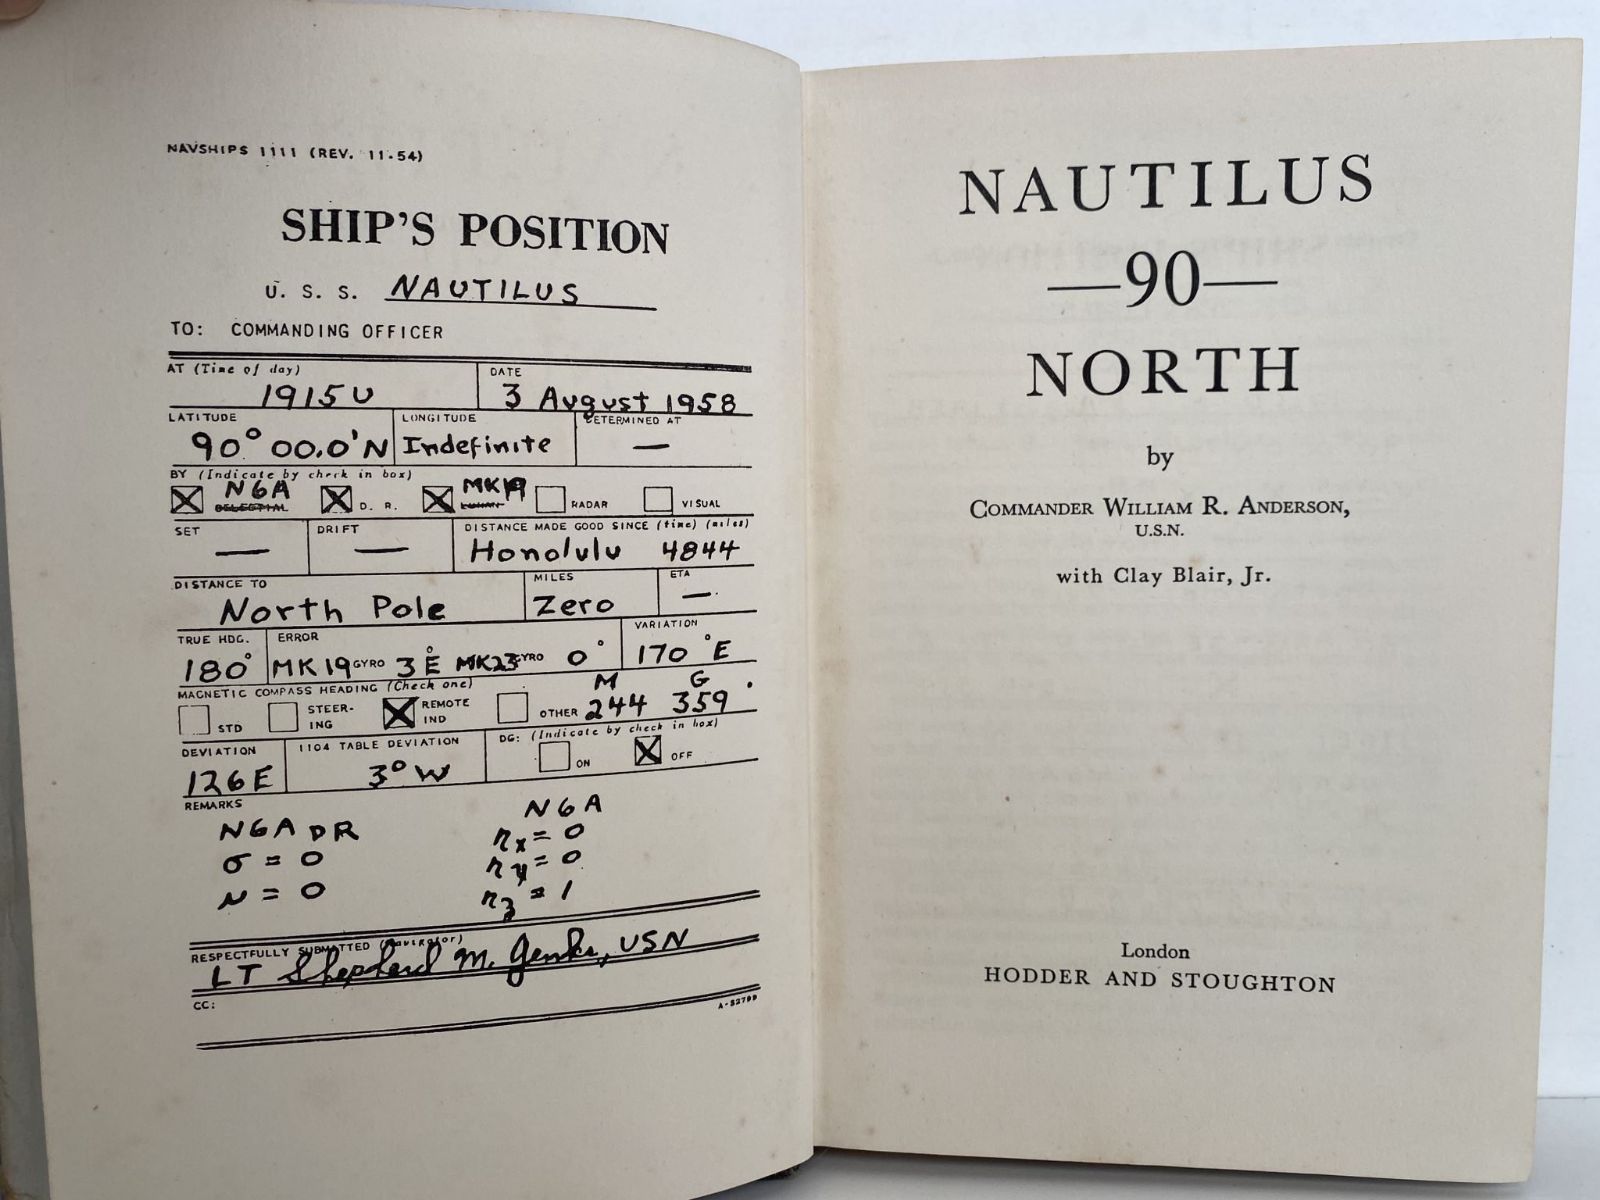 NAVSHIPS 1111 (REV. 11-54)
SHIP'S POSITION
U. S. S. NAUTILUS
TO: COMMANDING OFFICER
AT (Time of day) DATE
1915U 3 August 1958
LATITUDE LONGITUDE DETERMINED AT
90° 00.0'N Indefinite —
BY (Indicate by check in box)
N6A MK19
CELESTIAL D. R. LORAN RADAR VISUAL
SET DRIFT DISTANCE MADE GOOD SINCE (time) (miles)
— — Honolulu 4844
DISTANCE TO MILES ETA
North Pole Zero —
TRUE HDG. ERROR VARIATION
180° MK19 GYRO 3°E MK23 GYRO 0° 170°E
MAGNETIC COMPASS HEADING (Check one) M G
STD STEER-ING REMOTE IND OTHER 244 359
DEVIATION 1104 TABLE DEVIATION DG: (Indicate by check in box)
126E 3°W ON OFF
REMARKS
N6A DR N6A
σ = 0 nx = 0
μ = 0 ny = 0
nz = 1
RESPECTFULLY SUBMITTED (Navigator)
LT Shepherd M. Jenks, USN
CC: A-52799
NAUTILUS
—90—
NORTH
by
COMMANDER WILLIAM R. ANDERSON,
U.S.N.
with Clay Blair, Jr.
London
HODDER AND STOUGHTON